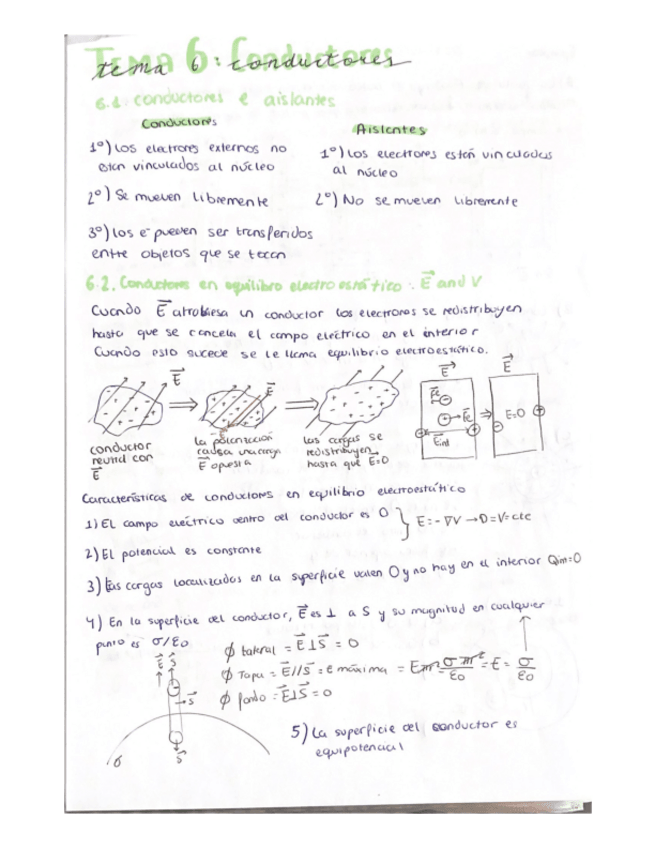 Tema 6: Conductores
tema 6: conductores
6.1. conductores e aislantes
Conductores
Aislantes
1º) Los electrones externos no
estan vinculados al núcleo
1º) Los electrones están vinculados
al núcleo
2º) Se mueven libremente
2º) No se mueven libremente
3º) los e⁻ pueden ser transferidos
entre objetos que se tocan
6.2. Conductores en equilibro electroestático: E⃗ and V
Cuando E⃗ atrabiesa un conductor los electrones se redistribuyen
hasta que se cancela el campo eléctrico en el interior
Cuando esto sucede se le llama equilibrio electroestático.
E⃗
E⃗
E⃗
E⃗
Fe
Fe
E⃗ind
E=0
conductor
neutral con
E⃗
la polarización
causa una carga
E⃗ opuesta
Las cargas se
redistribuyen
hasta que E⃗=0
Características de conductores en equilibrio electroestático
1) EL campo eléctrico dentro del conductor es 0
E = -∇V → 0 = V = cte
2) El potencial es constante
3) Las cargas localizadas en la superficie valen 0 y no hay en el interior Qint=0
4) En la superficie del conductor, E⃗ es ⊥ a S y su magnitud en cualquier
punto es σ/ε0
ϕ lateral = E⃗⊥S⃗ = 0
ϕ Tapa = E⃗//S⃗ = e máxima = Eπr² = σπr²/ε0 = E = σ/ε0
ϕ fondo = E⃗⊥S⃗ = 0
E⃗ S⃗
S⃗
S⃗
σ
5) La superficie del conductor es
equipotencial